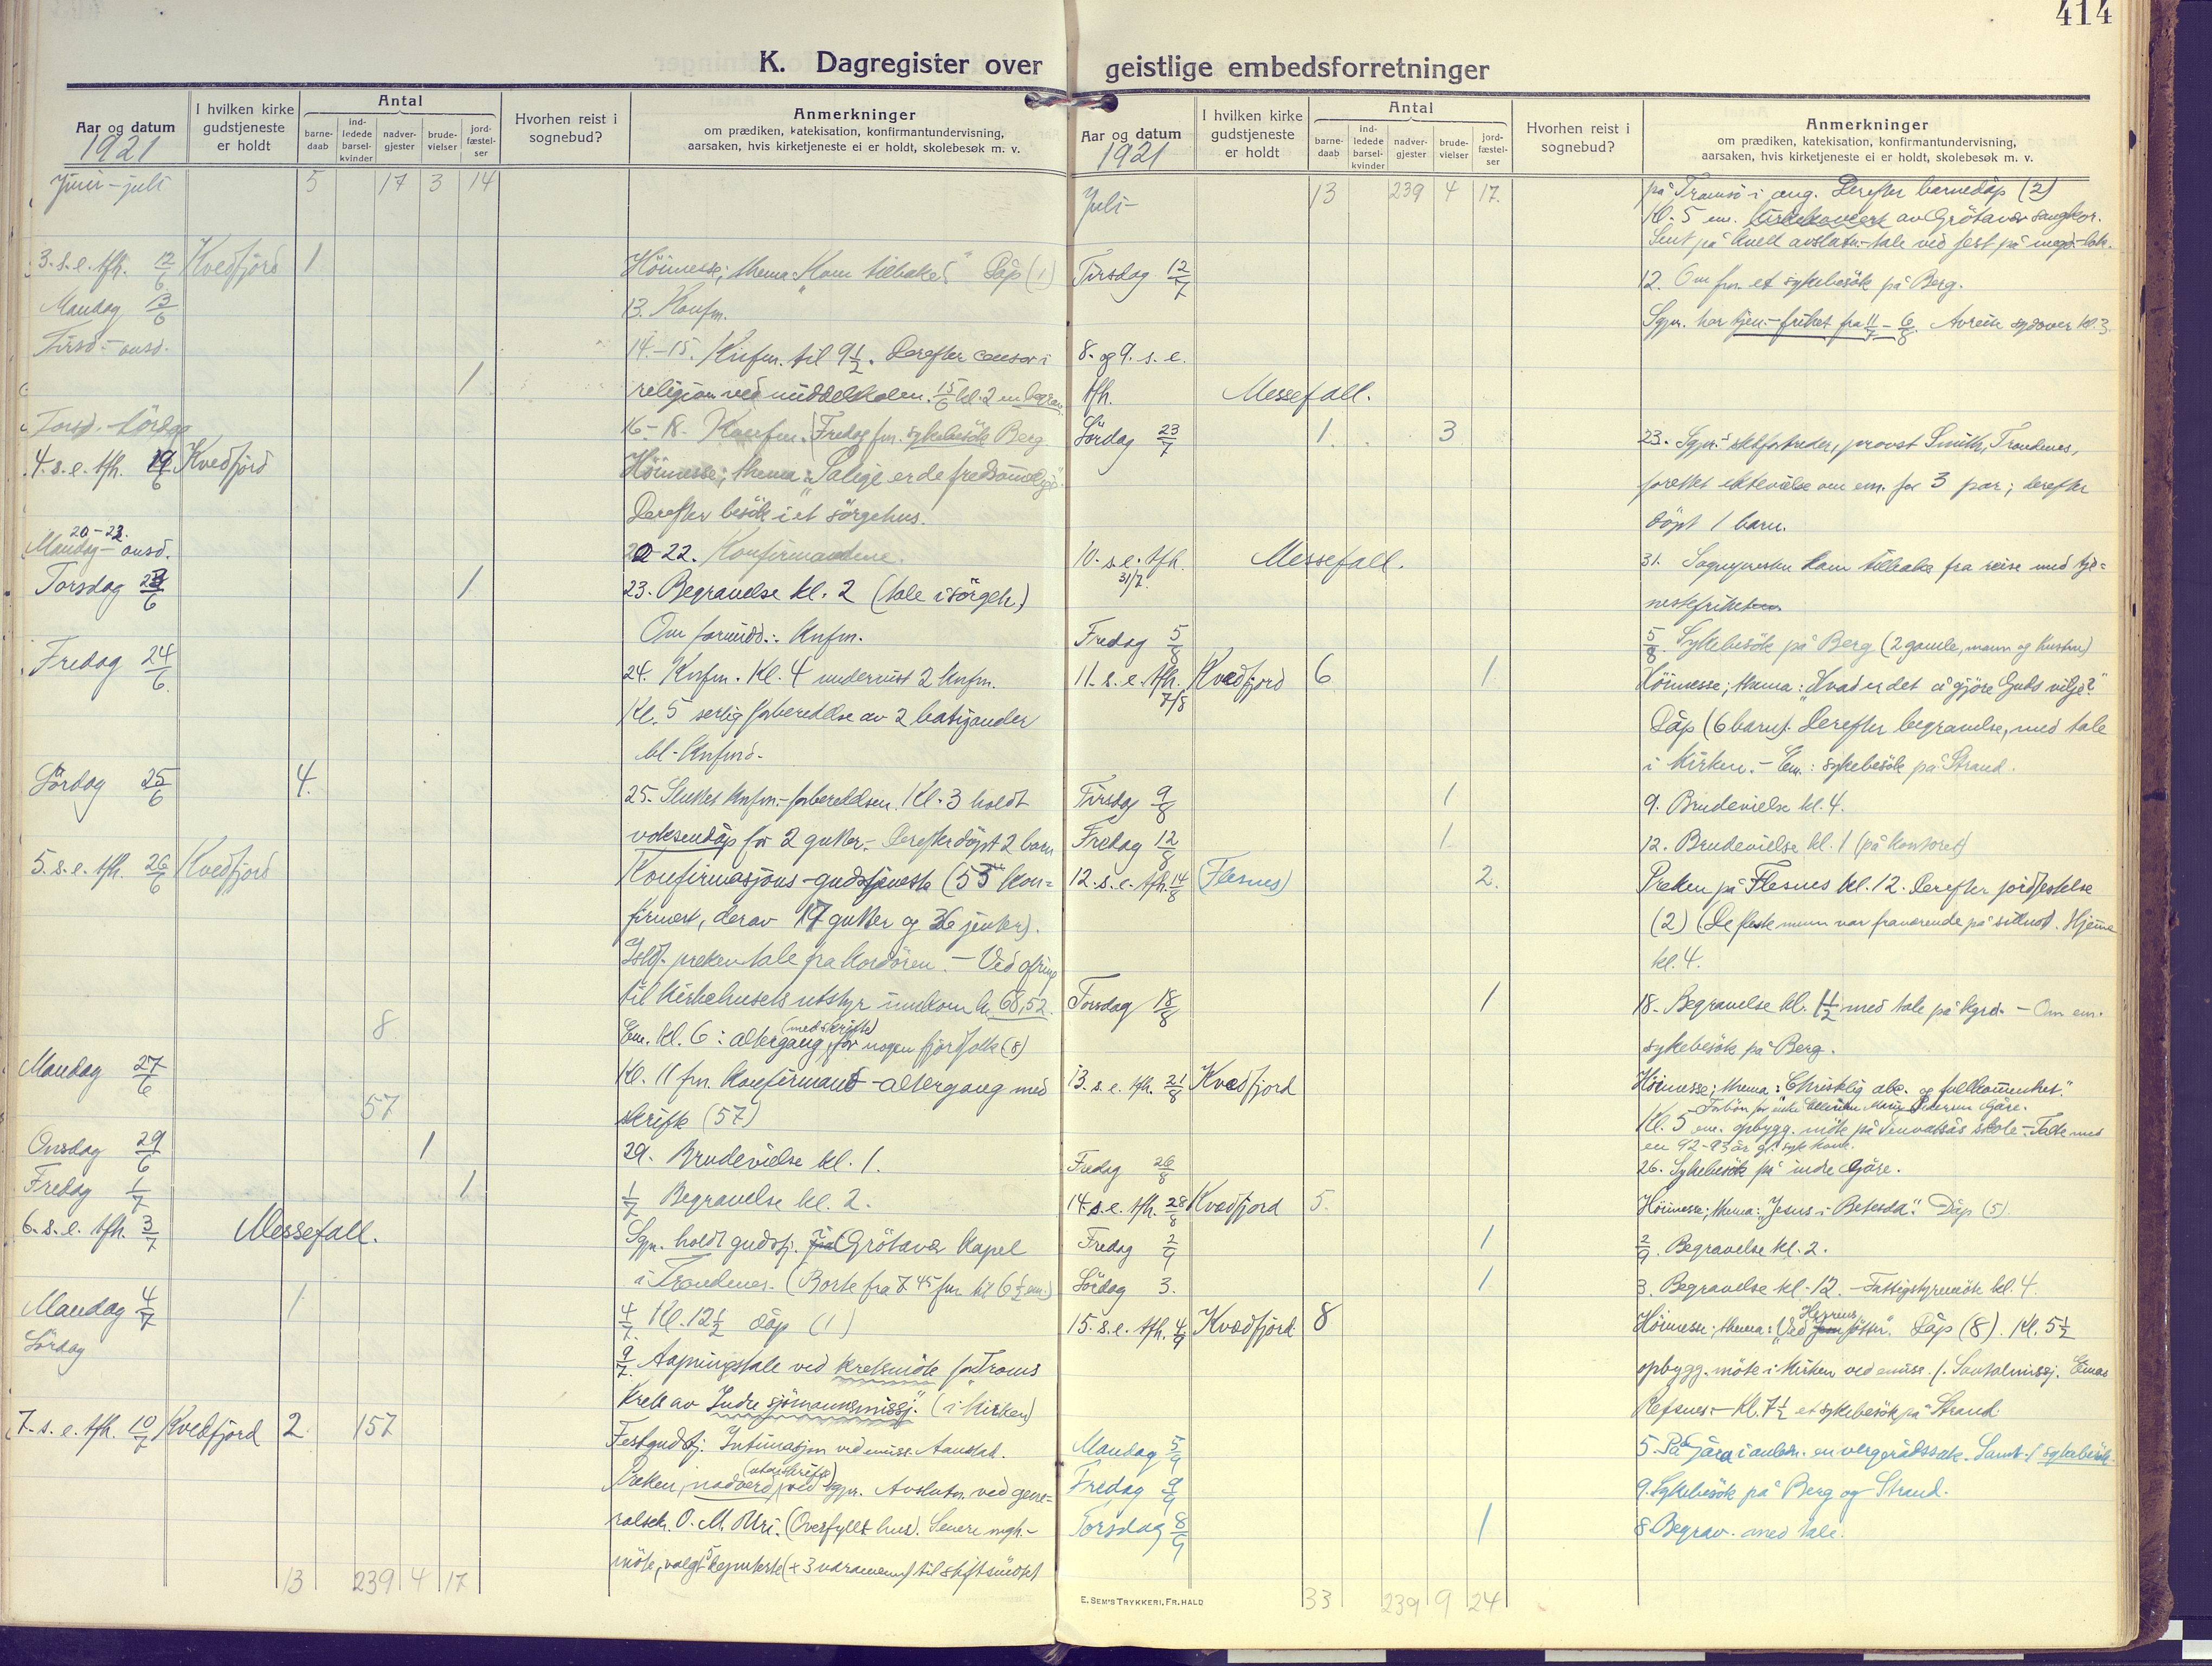 414
K. Dagregister over geistlige embedsforretninger
Aar og datum
1921
I hvilken kirke gudstjeneste er holdt
Antal
barne-daab
ind-ledede barsel-kvinder
nadver-gjester
brude-vielser
jord-fæstel-ser
Hvorhen reist i sognebud?
Anmerkninger
om prædiken, katekisation, konfirmantundervisning,
aarsaken, hvis kirketjeneste ei er holdt, skolebesøk m. v.
Juni - juli 5 17 3 14
3. s. e. tfh. 12/6 Kvedfjord 1 Höimesse; thema: "Kom tilbake!" Dåp (1)
Mandag 13/6 13. Konfm.
Tirsd. - onsd. 14.-15. Knfm. til 9 1/2. Derefter censor i
1 religion ved middelskolen. 15/6 kl. 2 em begrav.
Torsd. - Lördag 16-18. Konfm. Fredag fm. sykebesök Berg
4. s. e. tfh. 19/6 Kvedfjord Höimesse; thema: "Salige er de fredsommelige"
Derefter besök i et sörgehus.
20-22.
Mandag - onsd. 20-22. Konfirmandene.
Torsdag 23/6 1 23. Begravelse kl. 2 (tale i sörgeh.)
Om formidd.: Knfm.
Fredag 24/6 24. Knfm. Kl. 4 undervist 2 knfm.
Kl. 5 serlig forberedelse av 2
bl. knfmd.
Lördag 25/6 4. 25. Sluttet knfm.-forberedelsen. Kl. 3 holdt
voksendåp for 2 gutter. - Derefter döpt 2 barn
5. s. e. tfh. 26/6 Kvedfjord Konfirmasjons-gudstjeneste (53 kon=
firmert, derav 17 gutter og 36 jenter).
preken tale fra kordören. - Ved ofring
til kirkehusets utstyr innkom kr. 68,52.
8 Em. kl. 6: altergang (med skrifte) for nogen fjordfolk (8)
Mandag 27/6 Kl. 11 fm. konfirmand-altergang med
57 skrifte (57)
Onsdag 29/6 1 29. Brudevielse kl. 1.
Fredag 1/7 1 1/7 Begravelse kl. 2.
6. s. e. tfh. 3/7 Messefall. Sgpr. holdt gudstj. i Grötavær kapel
i Trondenes. (Borte fra 7.45 fm. til 6 1/2 em.)
Mandag 4/7 1 4/7 Kl. 12 1/2 dåp (1)
Lördag 9/7 Aapningstale ved kretsmöte for Troms
krets av "Indre sjömannsmissj." (i kirken)
7. s. e. tfh. 10/7 Kvedfjord 2 157 Festgudstj. Intimasjon ved miss. Aanstad.
Preken, nadverd (uten skrifte) ved sgpr. Avslutn. ved gene=
ralsek. O. M. Uri. (Overfyllt hus). Senere mgh.-
möte, valgt deputerte (+ 3 varamenn) til skiftsmötet
13 239 4 17
Aar og datum
1921
I hvilken kirke gudstjeneste er holdt
Antal
barne-daab
ind-ledede barsel-kvinder
nadver-gjester
brude-vielser
jord-fæstel-ser
Hvorhen reist i sognebud?
Anmerkninger
om prædiken, katekisation, konfirmantundervisning,
aarsaken, hvis kirketjeneste ei er holdt, skolebesøk m. v.
Juli - 13 239 4 17. på Tromsö i aug. Derefter barnedåp (2)
Kl. 5 em. kirkekonsert av Grötavær sangkor.
Sent på kveld avslutn.-tale ved fest på
Tirsdag 12/7 12. Om fm. et sykebesök på Berg.
Sgpr. har tjen.-frihet fra 11/7 - 6/8. Avreise sydover kl. 3.
8. og 9. s. e.
tfh. Messefall.
Lördag 23/7 1. 3 23. Sgpr.s stedfortreder, provst Smith, Trondenes,
forettet ektevielse om em. for 3 par; derefter
döpt 1 barn.
10. s. e. tfh. 31/7. Messefall. 31. Sognepresten kom tilbake fra reise med tje=
nestefriheten
Fredag 5/8 5/8. Sykebesök på Berg (2 gamle, mann og hustru)
11. s. e. tfh. 7/8 Kvedfjord 6 1 Höimesse; thema: "Hvad er det å gjöre Guds vilje?"
Dåp (6 barn). Derefter begravelse, med tale
i kirken. - Em.: sykebesök på Strand.
Tirsdag 9/8 1 9. Brudevielse kl. 4.
Fredag 12/8 1. 12. Brudevielse kl. 1 (på kontoret)
12. s. e. tfh. 14/8 (Flesnes) 2. Preken på Flesnes kl. 12. Derefter jordfestelse
(2) (De fleste menn var fraværende på sildnot. Hjemme
kl. 4.
Torsdag 18/8 1 18. Begravelse kl. 1 1/2 med tale på kgrd. - Om em.
sykebesök på Berg.
13. s. e. tfh. 21/8 Kvedfjord Höimesse; thema: "Christelig alv. og fullkommenhet".
Forbön for enke Marie Pedersen Gåre.
Kl. 5 em. opbygg. möte på skole. - Talte med
en 92-93 år gl. syk
Fredag 26/8 26. Sykebesök på indre Gåre.
14. s. e. tfh. 28/8 Kvedfjord 5. Höimesse; thema: "Jesus i Betesda". Dåp (5).
Fredag 2/9 1 2/9. Begravelse kl. 2.
Lördag 3. 1. 3. Begravelse kl. 12. - Fattigstyremöte kl. 4.
15. s. e. tfh. 4/9 Kvedfjord 8 Höimesse; thema: "Ved Herrens fötter". Dåp (8). Kl. 5 1/2
opbygg. möte i kirken ved emiss. f. Santalmissj. Einar
Refsnes. - Kl. 7 1/2 et sykebesök på Strand.
Mandag 5/9 5. På Gåra i anledn. en vergerådssak. Samt 1 sykebesök.
Fredag 9/9 9. Sykebesök på Berg og Strand.
Torsdag 8/9 1 8. Begrav. med tale.
E. SEM'S TRYKKERI, FR.HALD
33 239 9 24